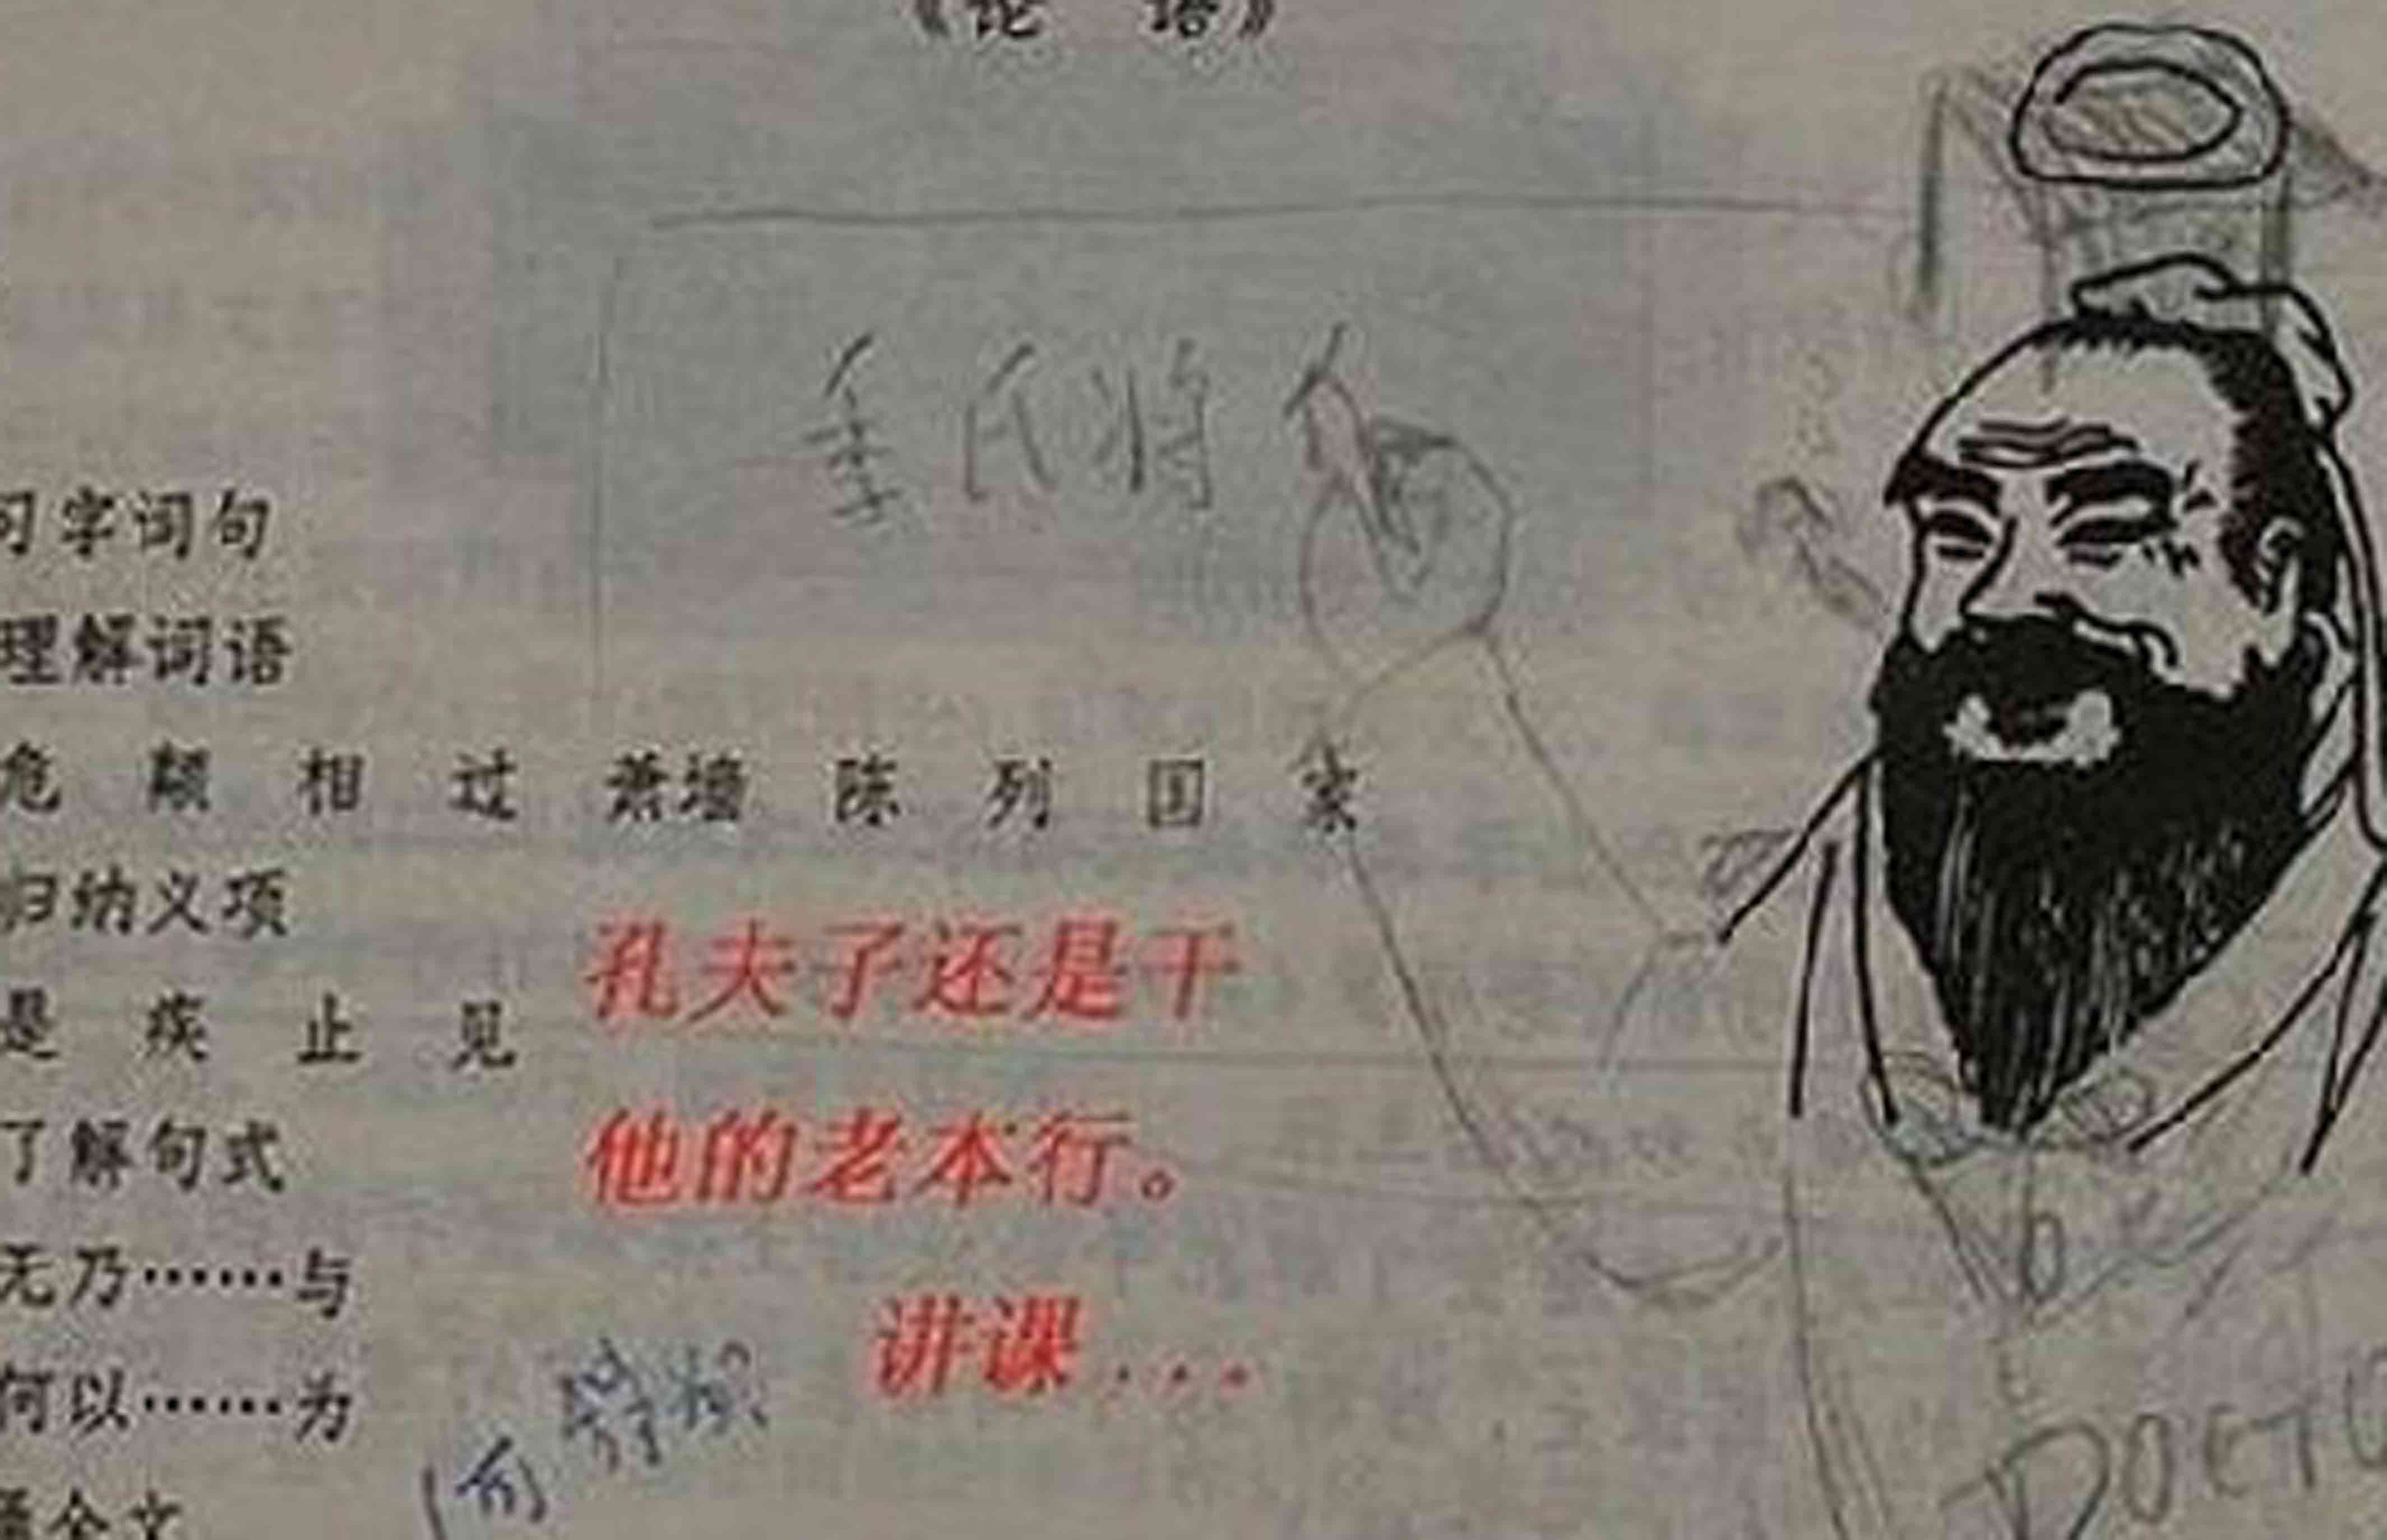 《论 语》
季氏将
习字词句
理解词语
危 颠 相 过 萧墙 陈 列 国 家
归纳义项
是 疾 止 见
了解句式
无乃……与
何以……为
全文
孔夫子还是干
他的老本行。
讲课...
DOCTO